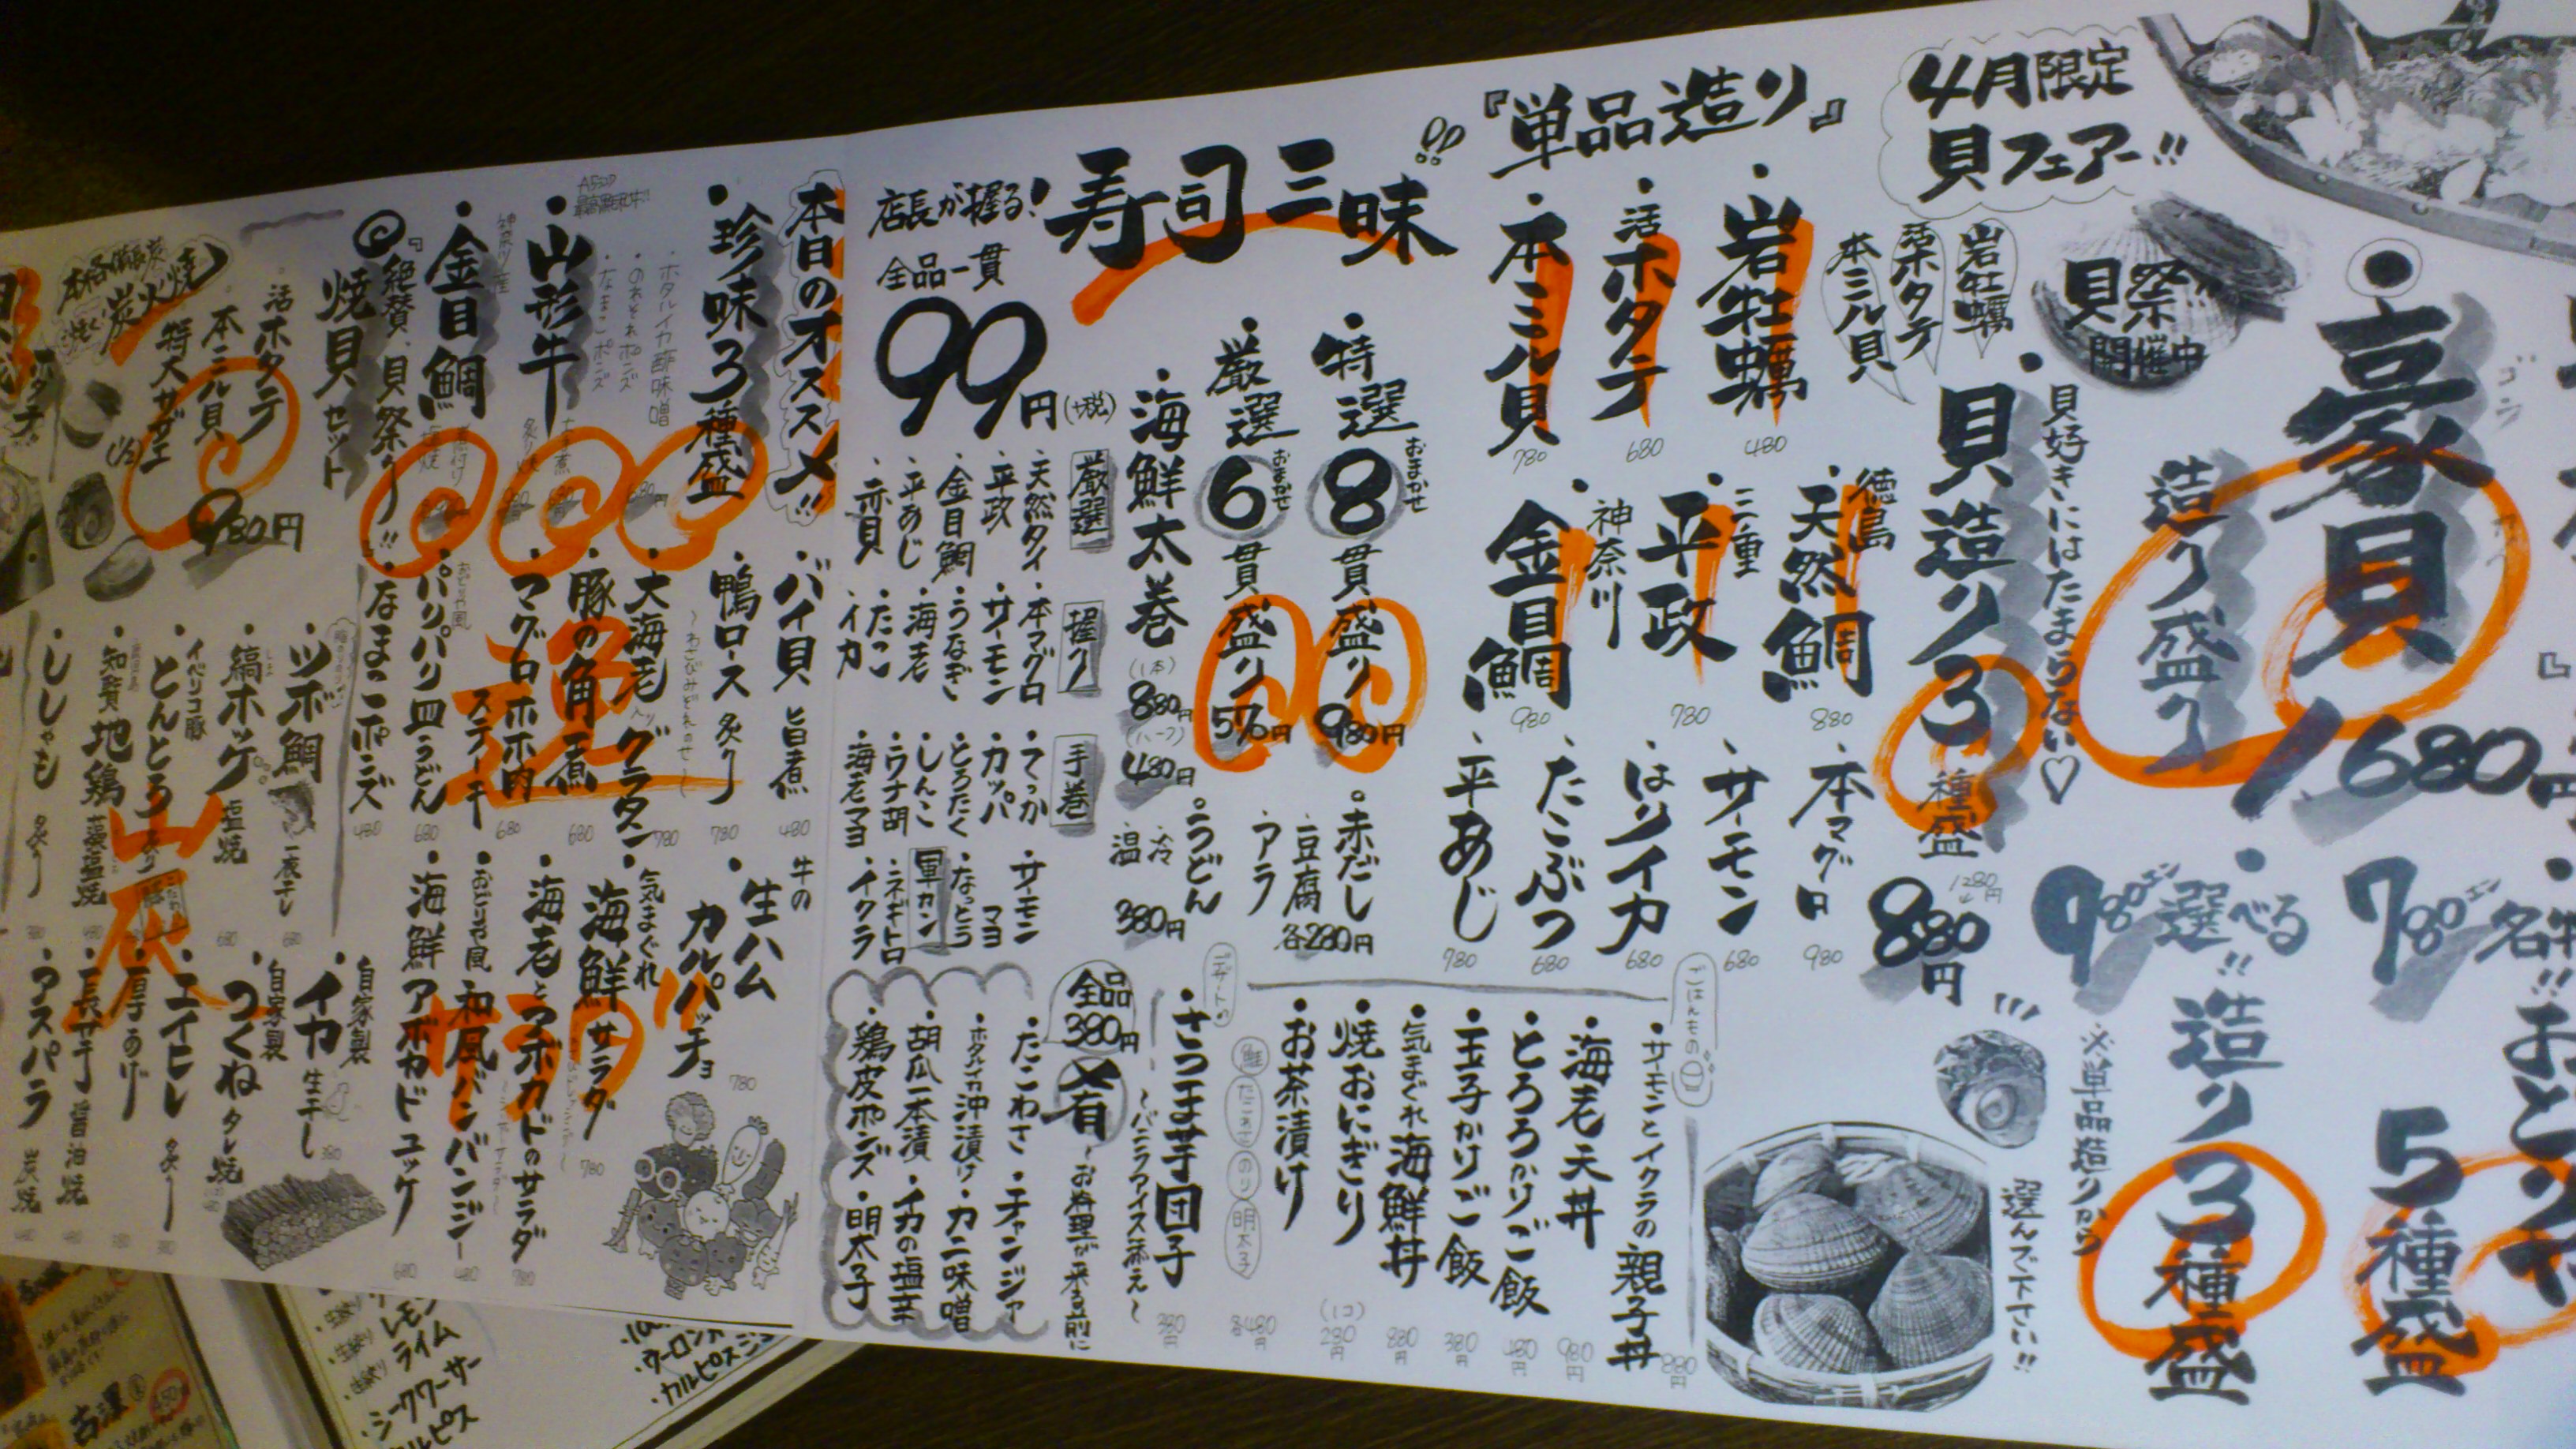 4月限定
貝フェアー!!
貝祭り
開催中
岩牡蠣
活ホタテ
本ミル貝
豪貝
造り盛り
1680円
貝好きにはたまらない♡
貝造り3種盛
1280円
880円
780エン
名物!!
5種盛
980エン
選べる!!
造り3種盛
※単品造りから
選んで下さい!!
『単品造り』
岩牡蠣 480
活ホタテ 680
本ミル貝 780
徳島
天然鯛 880
三重
平政 780
神奈川
金目鯛 980
本マグロ 980
サーモン 680
はりイカ 680
たこぶつ 680
平あじ 780
店長が握る!
寿司三味!!
全品一貫
99円(+税)
特選
おまかせ
8貫盛り
980円
厳選
おまかせ
6貫盛り
海鮮太巻
(1本)
880円
(ハーフ)
480円
赤だし
豆腐
アラ
各280円
うどん
冷
温
380円
厳選
天然タイ
平政
金目鯛
平あじ
赤貝
握り
本マグロ
サーモン
うなぎ
海老
たこ
イカ
手巻
てっか
カッパ
とろたく
しんこ
ウナ胡
海老マヨ
サーモンマヨ
なっとう
軍カン
ネギトロ
イクラ
ごはんもの
サーモンとイクラの親子丼 880円
海老天丼 980円
とろろかけご飯 480円
玉子かけご飯 380円
気まぐれ海鮮丼 880円
焼おにぎり (1コ) 280円
お茶漬け
鮭
たこわさ
のり
明太子
各480円
デザートの
さつま芋団子
~バニラアイス添え~
380円
全品
380円
~お料理が来る前に
たこわさ
チャンジャ
ホタルイカ沖漬け
カニ味噌
胡瓜一本漬
イカの塩辛
鶏皮ポンズ
明太子
本日のオススメ!!
珍味3種盛
ホタルイカ酢味噌
のれそれポンズ
なまこポンズ
680円
山形牛
神奈川産
金目鯛
『絶賛、貝祭り!!』
焼貝セット
活ホタテ
本ミル貝
特大サザエ
980円
炭火焼
バイ貝 旨煮 480
鴨ロース 炙り 780
~わさびみぞれのせ~
大海老グラタン 780
豚の角煮 680
マグロホホ肉ステーキ 680
おどりや風
パリパリ皿うどん 680
なまこポンズ 480
サラダ
牛の
生ハム
カルパッチョ 780
気まぐれ
海鮮サラダ 780
海老とアボカドのサラダ 780
おどりや風
和風バンバンジー 480
海鮮アボカドユッケ 680
ツボ鯛 一夜干し 680
縞ホッケ 塩焼 680
イベリコ豚
とんとろ 炙り
知覧地鶏 藻塩焼 480
ししゃも 炙り
自家製
イカ 生干し 380
自家製
つくね タレ焼
エイヒレ 炙り
厚あげ
長芋 醤油焼
アスパラ 炭焼
生絞り
レモン
ライム
シークワーサー
カルピス